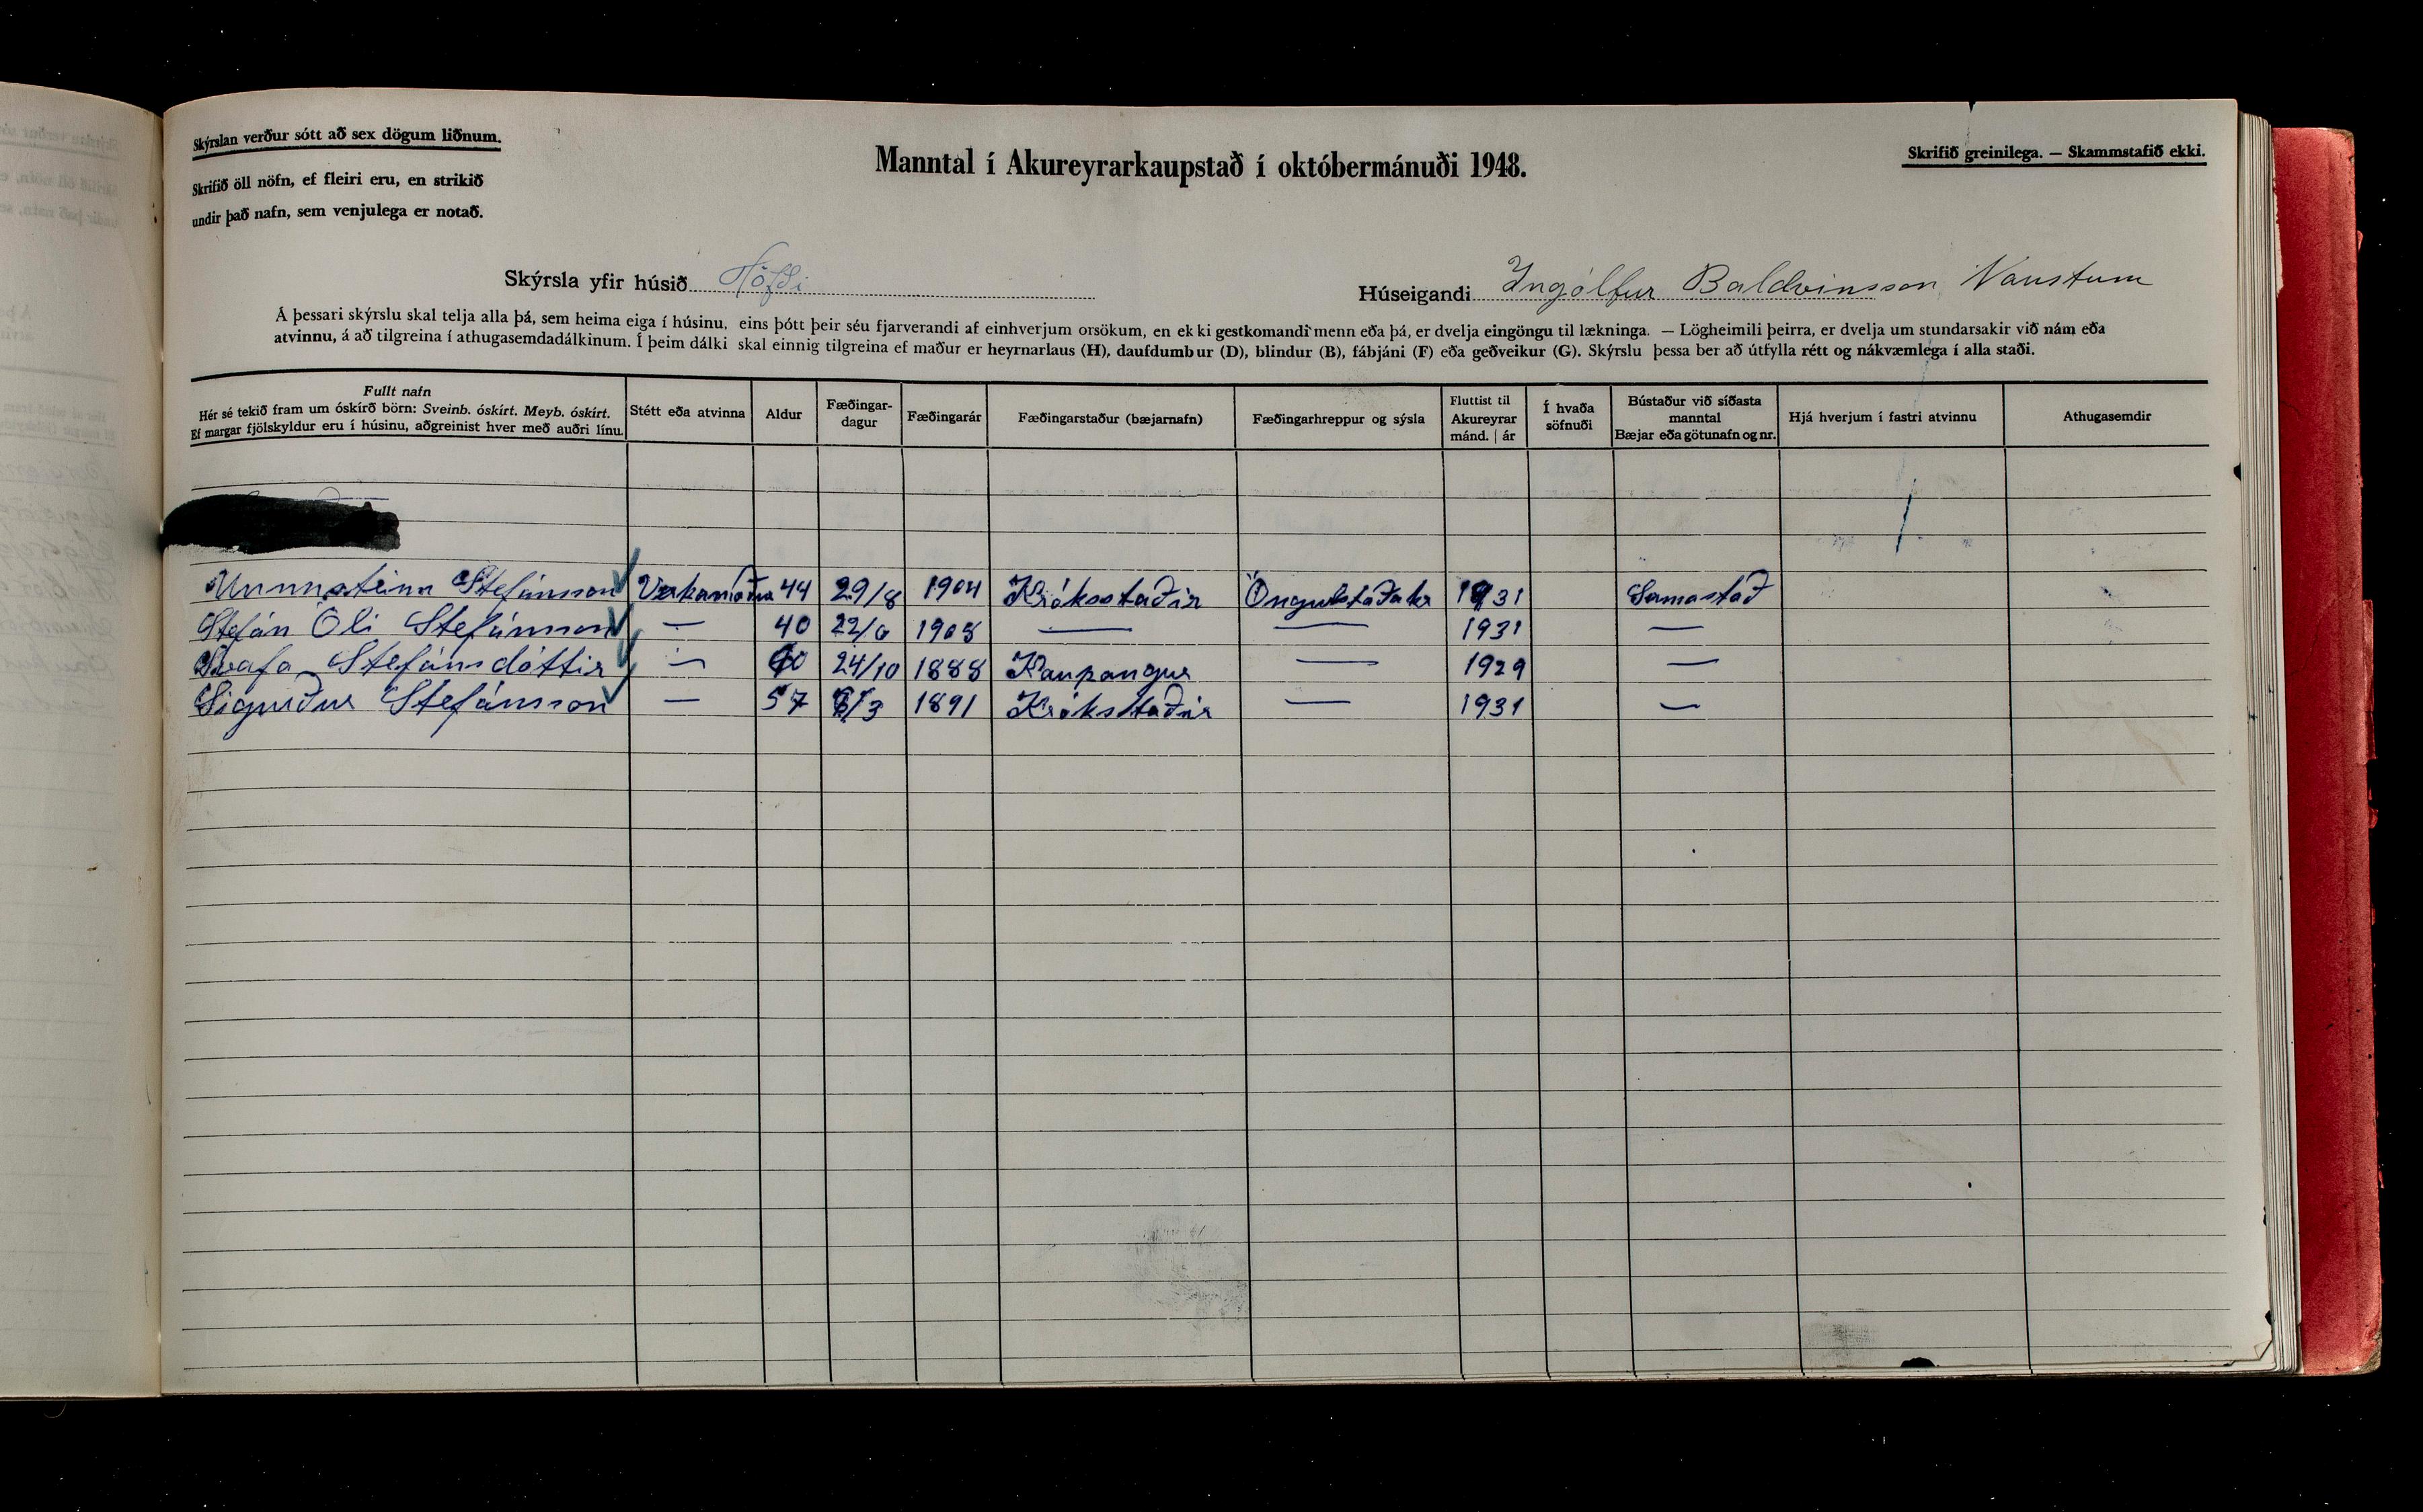 Skýrslan verður sótt að sex dögum liðnum.
Skrifið öll nöfn, ef fleiri eru, en strikið
undir það nafn, sem venjulega er notað.
Manntal í Akureyrarkaupstað í októbermánuði 1948.
Skrifið greinilega. — Skammstafið ekki.
Skýrsla yfir húsið Höfði
Húseigandi Ingólfur Baldvinsson Naustum
Á þessari skýrslu skal telja alla þá, sem heima eiga í húsinu, eins þótt þeir séu fjarverandi af einhverjum orsökum, en ekki gestkomandi menn eða þá, er dvelja eingöngu til lækninga. — Lögheimili þeirra, er dvelja um stundarsakir við nám eða
atvinnu, á að tilgreina í athugasemdadálkinum. Í þeim dálki skal einnig tilgreina ef maður er heyrnarlaus (H), daufdumbur (D), blindur (B), fábjáni (F) eða geðveikur (G). Skýrslu þessa ber að útfylla rétt og nákvæmlega í alla staði.
Fullt nafn
Hér sé tekið fram um óskírð börn: Sveinb. óskírt. Meyb. óskírt.
Ef margar fjölskyldur eru í húsinu, aðgreinist hver með auðri línu.
Stétt eða atvinna
Aldur
Fæðingar-
dagur
Fæðingarár
Fæðingarstaður (bæjarnafn)
Fæðingarhreppur og sýsla
Fluttist til
Akureyrar
mánd. | ár
Í hvaða
söfnuði
Bústaður við síðasta
manntal
Bæjar eða götunafn og nr.
Hjá hverjum í fastri atvinnu
Athugasemdir
Unnsteinn Stefánsson 44 29/8 1904 Króksstaðir Öngulstaðahr 1931 Samastað
Stefán Óli Stefánsson — 40 22/6 1908 — — 1931 —
Svafa Stefánsdóttir — 60 24/10 1888 Kaupangur — 1929 —
Sigurður Stefánsson — 57 /3 1891 Króksstaðir — 1931 —